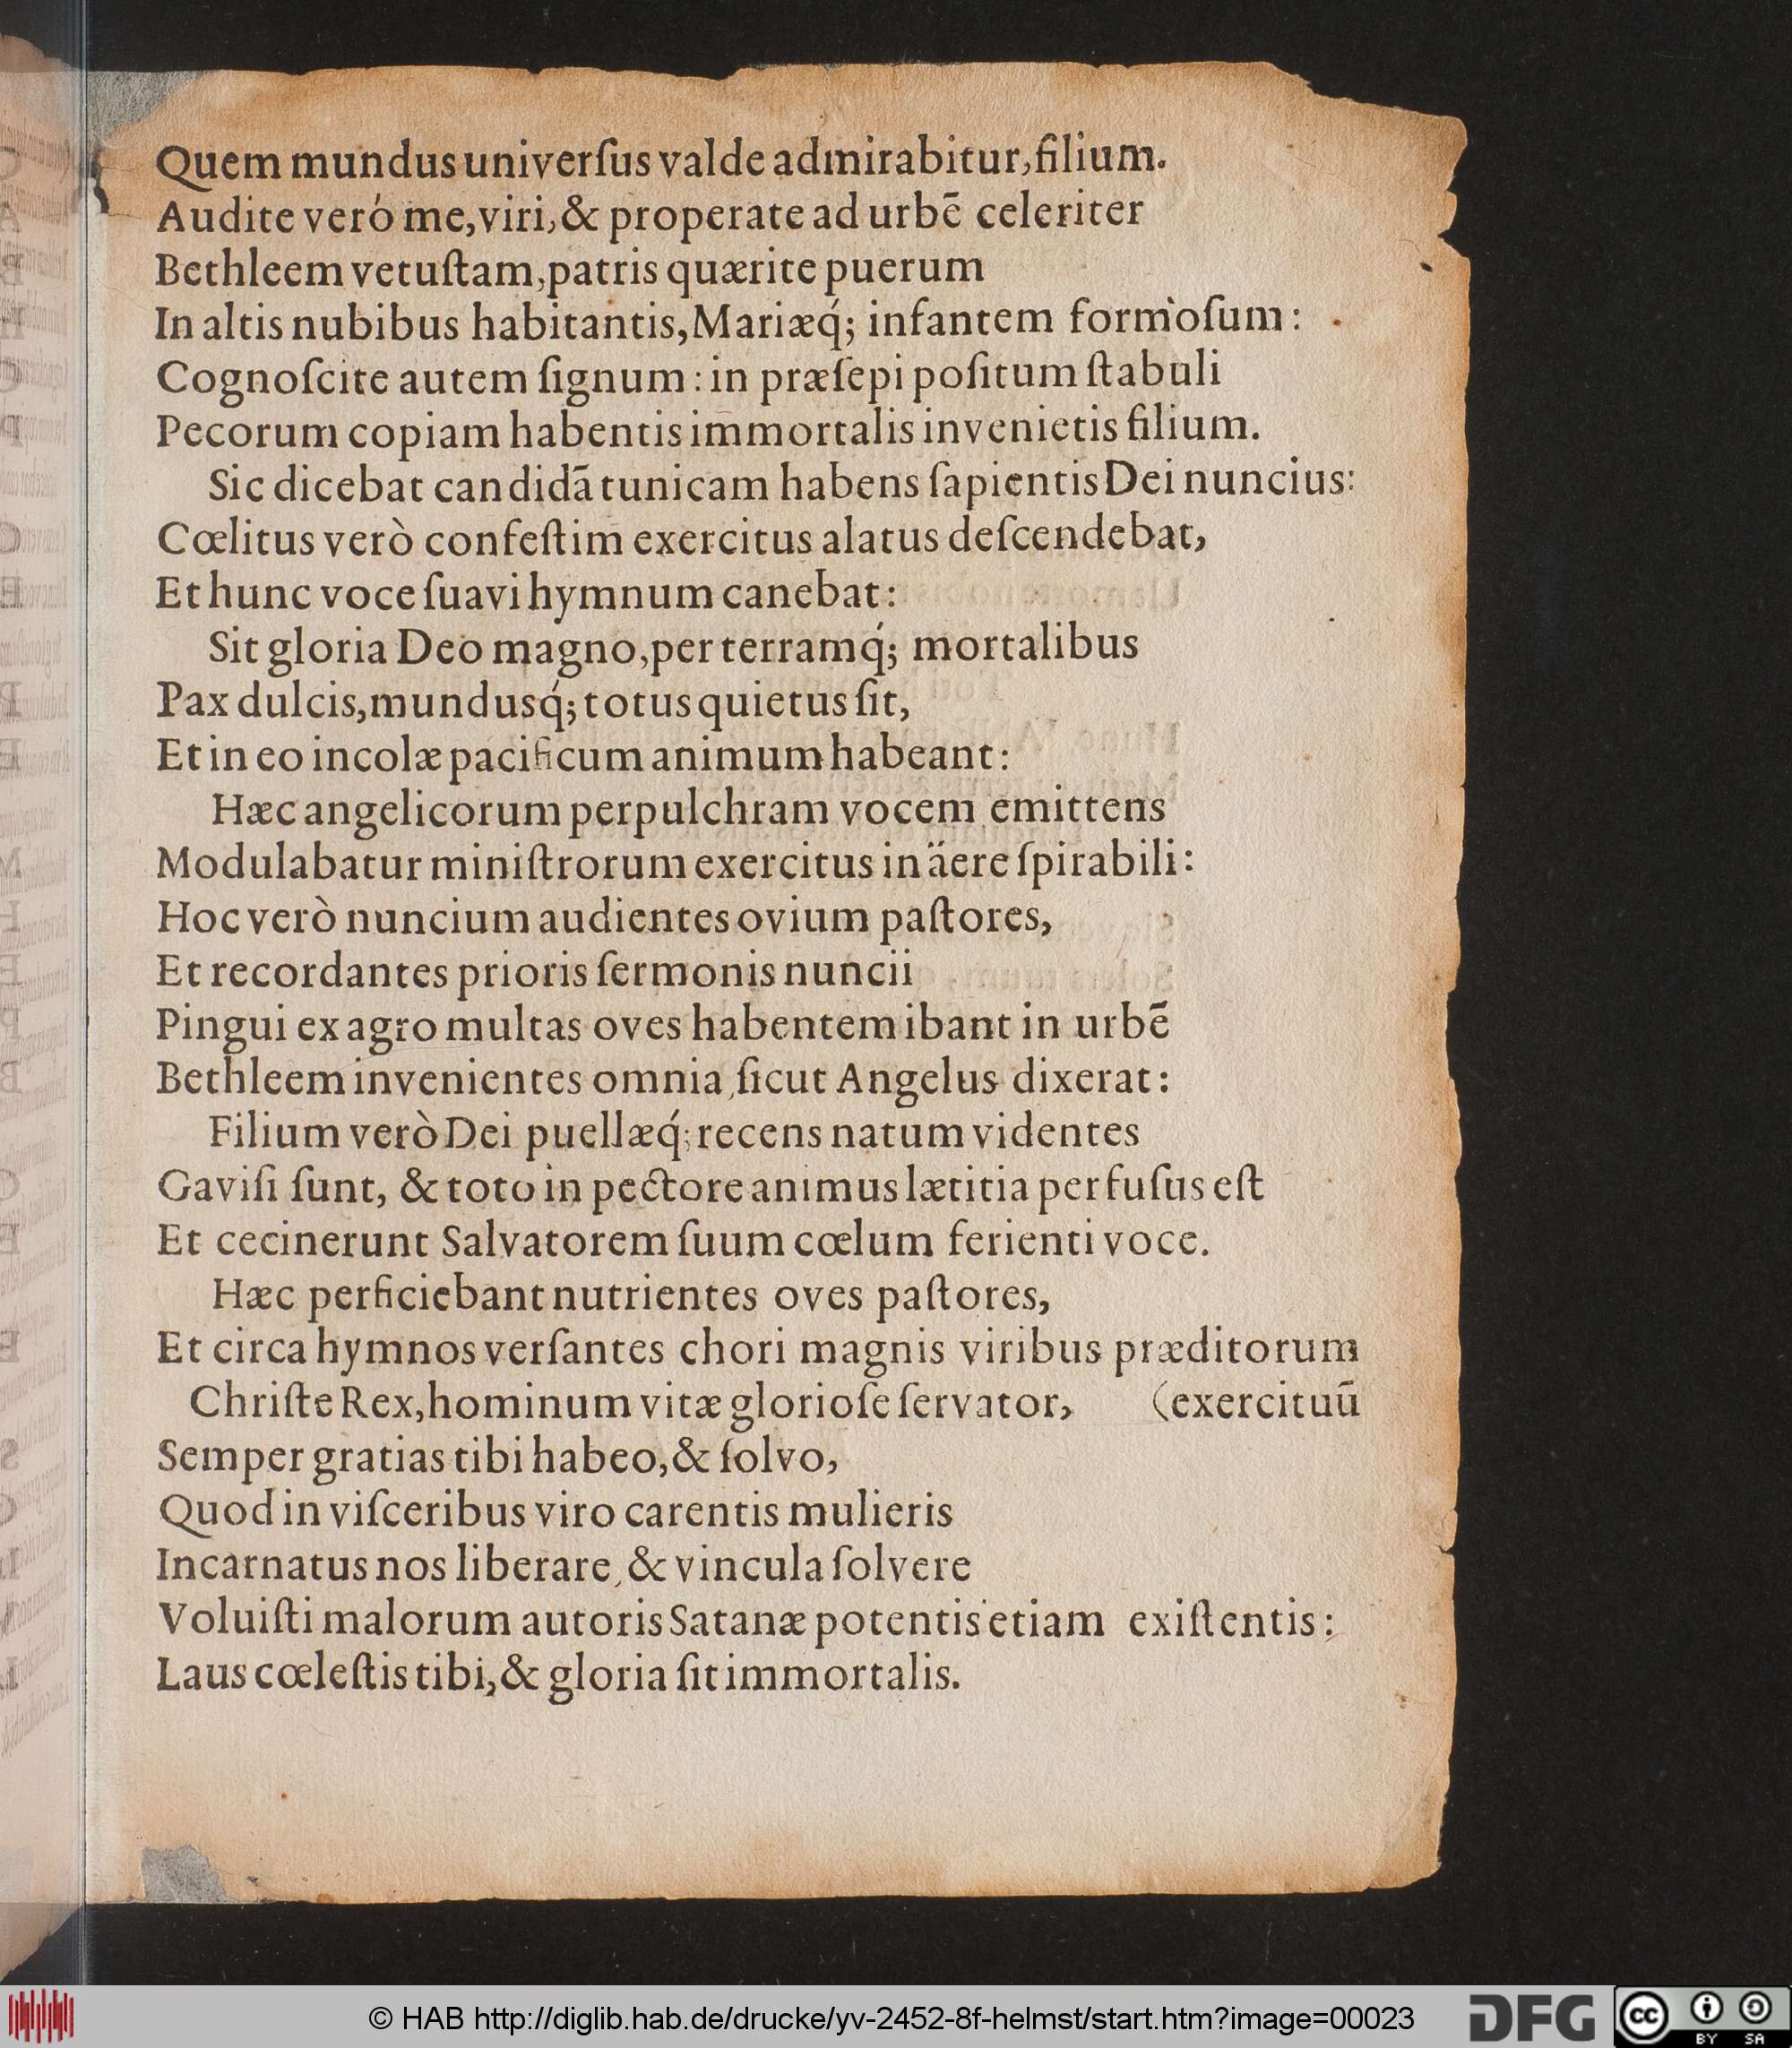 Quem mundus univerſus valde admirabitur, filium.
Audite veró me, viri, & properate ad urbē celeriter
Bethleem vetuſtam, patris quærite puerum
In altis nubibus habitantis, Mariæq́; infantem formoſum:
Cognoſcite autem ſignum: in præſepi poſitum ſtabuli
Pecorum copiam habentis immortalis invenietis filium.
Sic dicebat candidā tunicam habens ſapientis Dei nuncius:
Cœlitus verò confeſtim exercitus alatus deſcendebat,
Et hunc voce ſuavi hymnum canebat:
Sit gloria Deo magno, per terramq́; mortalibus
Pax dulcis, mundusq́; totus quietus ſit,
Et in eo incolæ pacificum animum habeant:
Hæc angelicorum perpulchram vocem emittens
Modulabatur miniſtrorum exercitus in äere ſpirabili:
Hoc verò nuncium audientes ovium paſtores,
Et recordantes prioris ſermonis nuncii
Pingui ex agro multas oves habentem ibant in urbē
Bethleem invenientes omnia, ſicut Angelus dixerat:
Filium verò Dei puellæq́; recens natum videntes
Gaviſi ſunt, & toto in pectore animus lætitia perfuſus eſt
Et cecinerunt Salvatorem ſuum cœlum ferienti voce.
Hæc perficiebant nutrientes oves paſtores,
Et circa hymnos verſantes chori magnis viribus præditorum
Chriſte Rex, hominum vitæ glorioſe ſervator, (exercituū
Semper gratias tibi habeo, & ſolvo,
Quod in viſceribus viro carentis mulieris
Incarnatus nos liberare, & vincula ſolvere
Voluiſti malorum autoris Satanæ potentis etiam exiſtentis:
Laus cœleſtis tibi, & gloria ſit immortalis.
© HAB http://diglib.hab.de/drucke/yv-2452-8f-helmst/start.htm?image=00023
DFG
cc BY SA